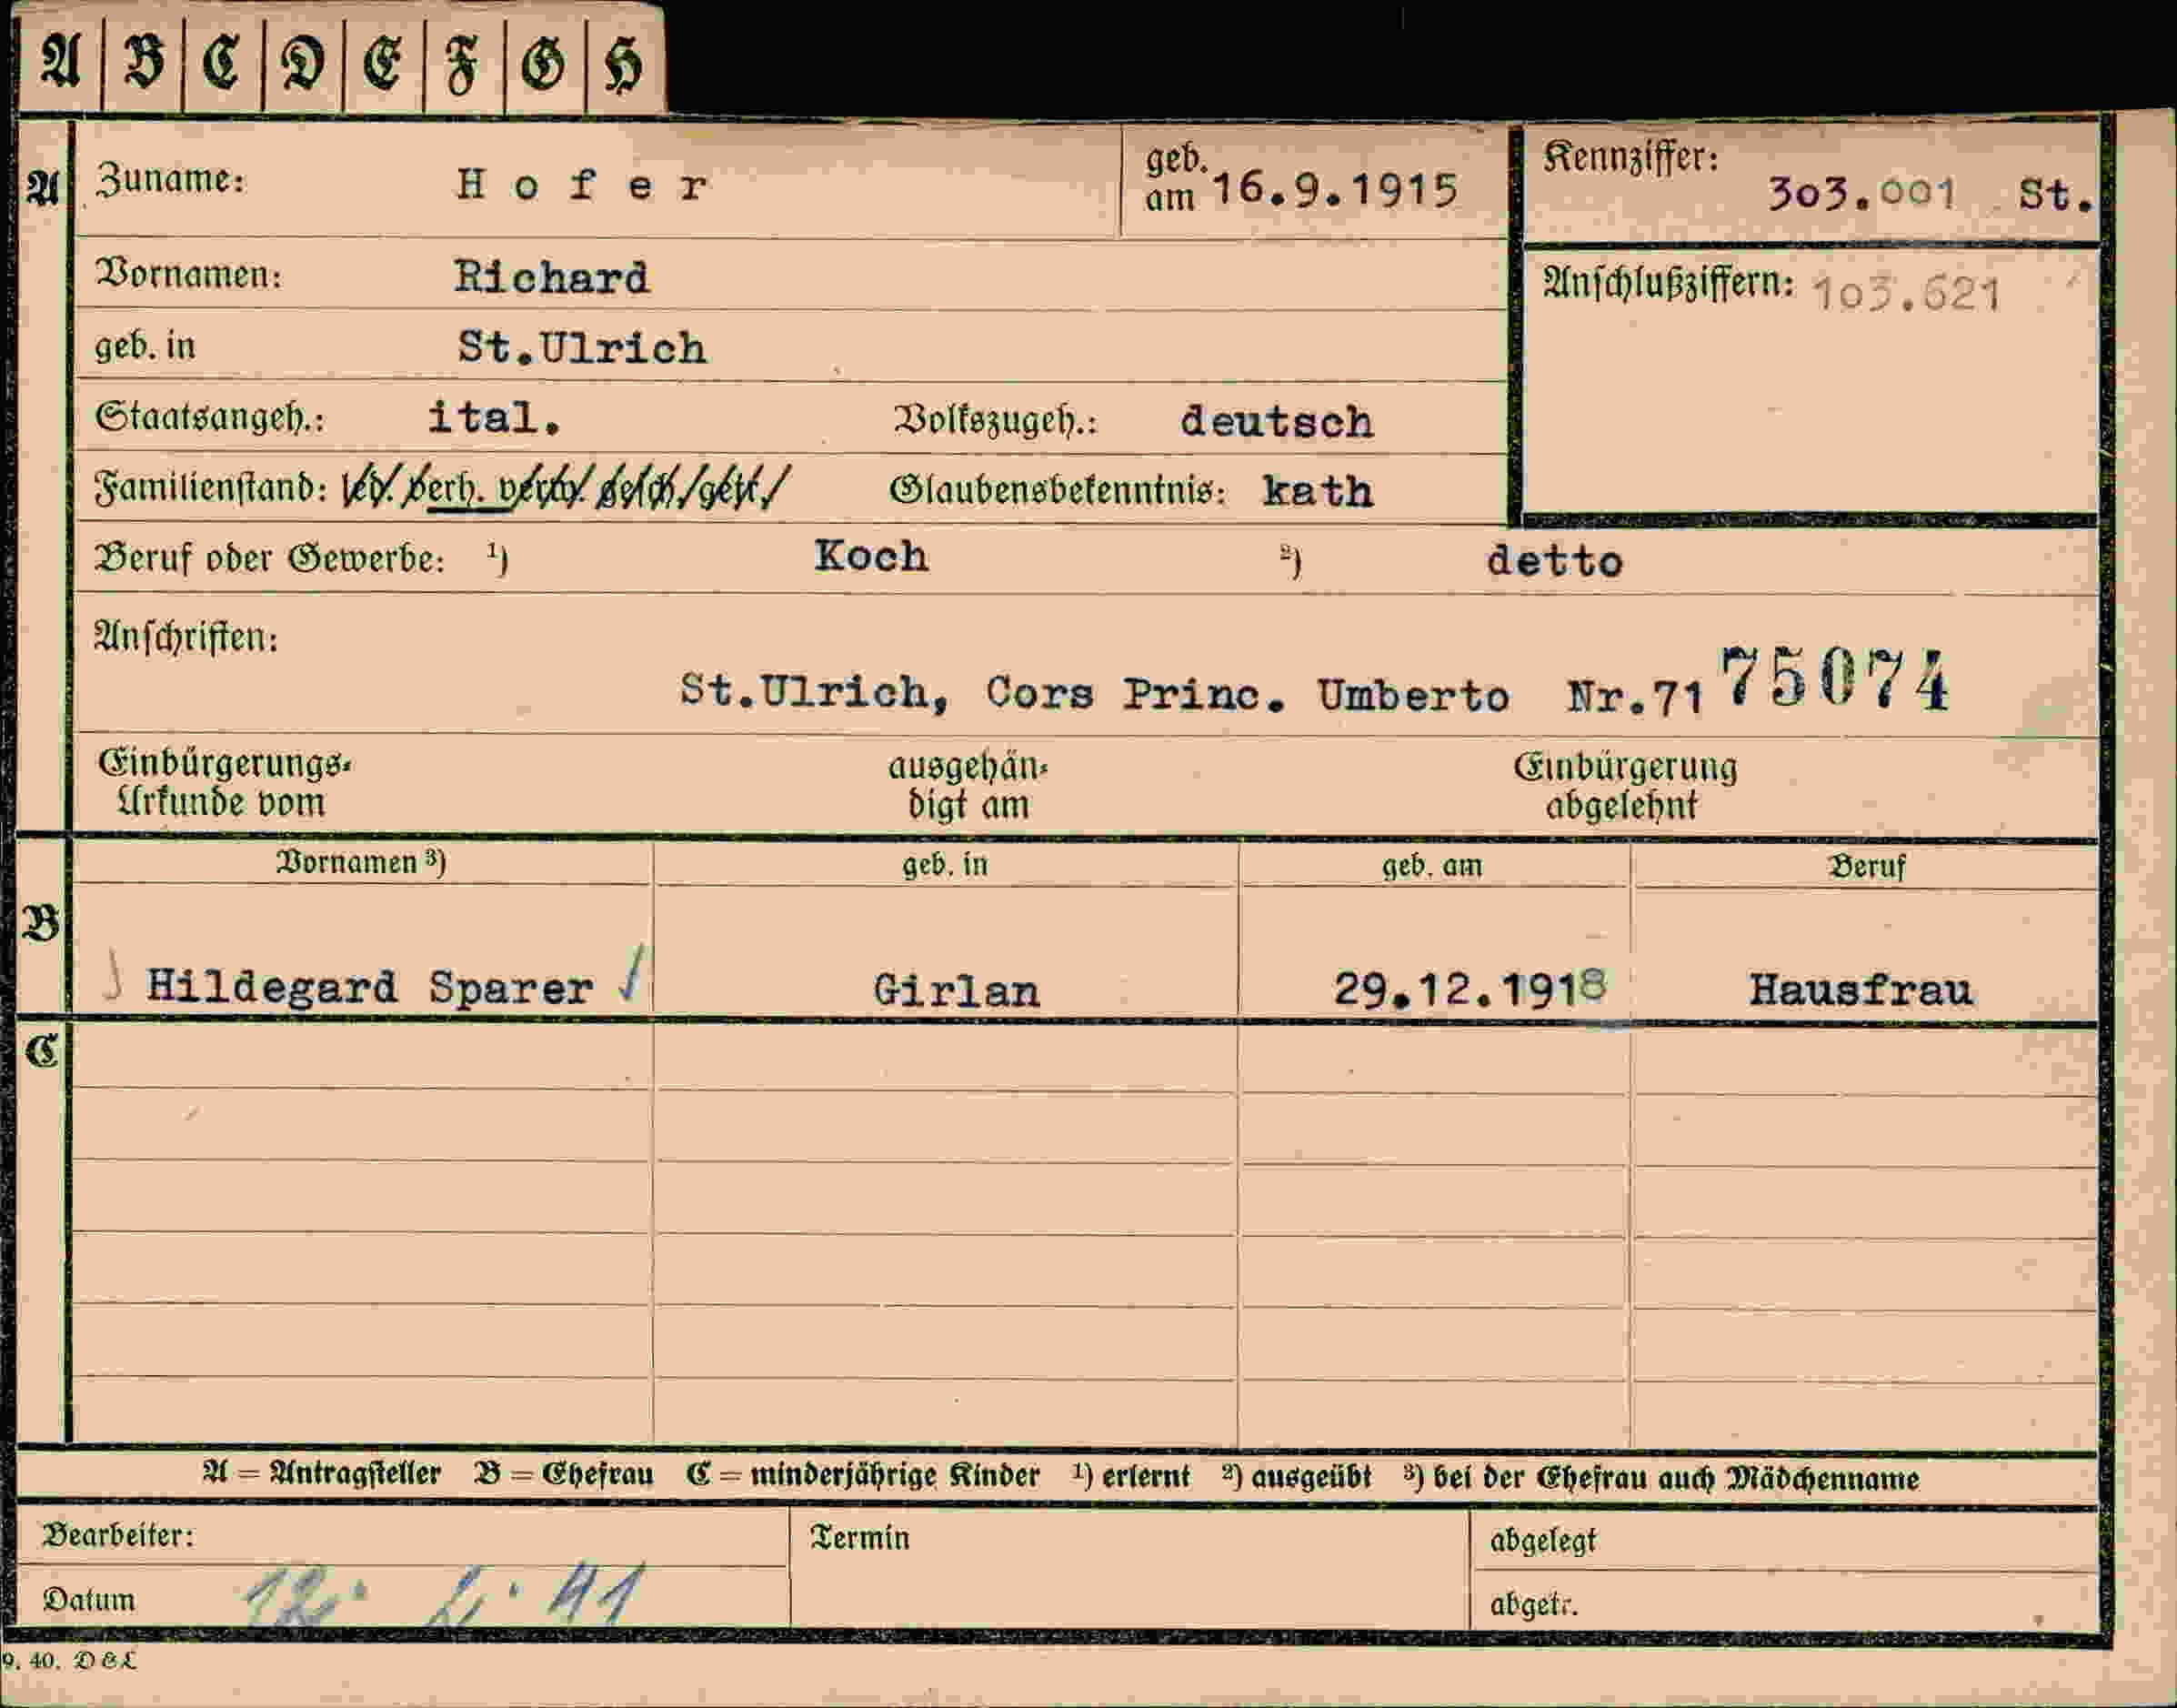 A B C D E F G H
A Zuname: Hofer geb. am 16.9.1915 Kennziffer: 303.001 St.
Vornamen: Richard Anschlußziffern: 103.621
geb. in St.Ulrich
Staatsangeh.: ital. Volkszugeh.: deutsch
Familienstand: led. verh. verw. gesch. getr. Glaubensbekenntnis: kath
Beruf oder Gewerbe: 1) Koch 2) detto
Anschriften:
St.Ulrich, Cors Princ. Umberto Nr.71 75074
Einbürgerungs- ausgehän- Einbürgerung
Urkunde vom digt am abgelehnt
Vornamen 3) geb. in geb. am Beruf
B
Hildegard Sparer Girlan 29.12.1918 Hausfrau
C
A = Antragsteller B = Ehefrau C = minderjährige Kinder 1) erlernt 2) ausgeübt 3) bei der Ehefrau auch Mädchenname
Bearbeiter: Termin abgelegt
Datum 41 abgetr.
9. 40. D & L